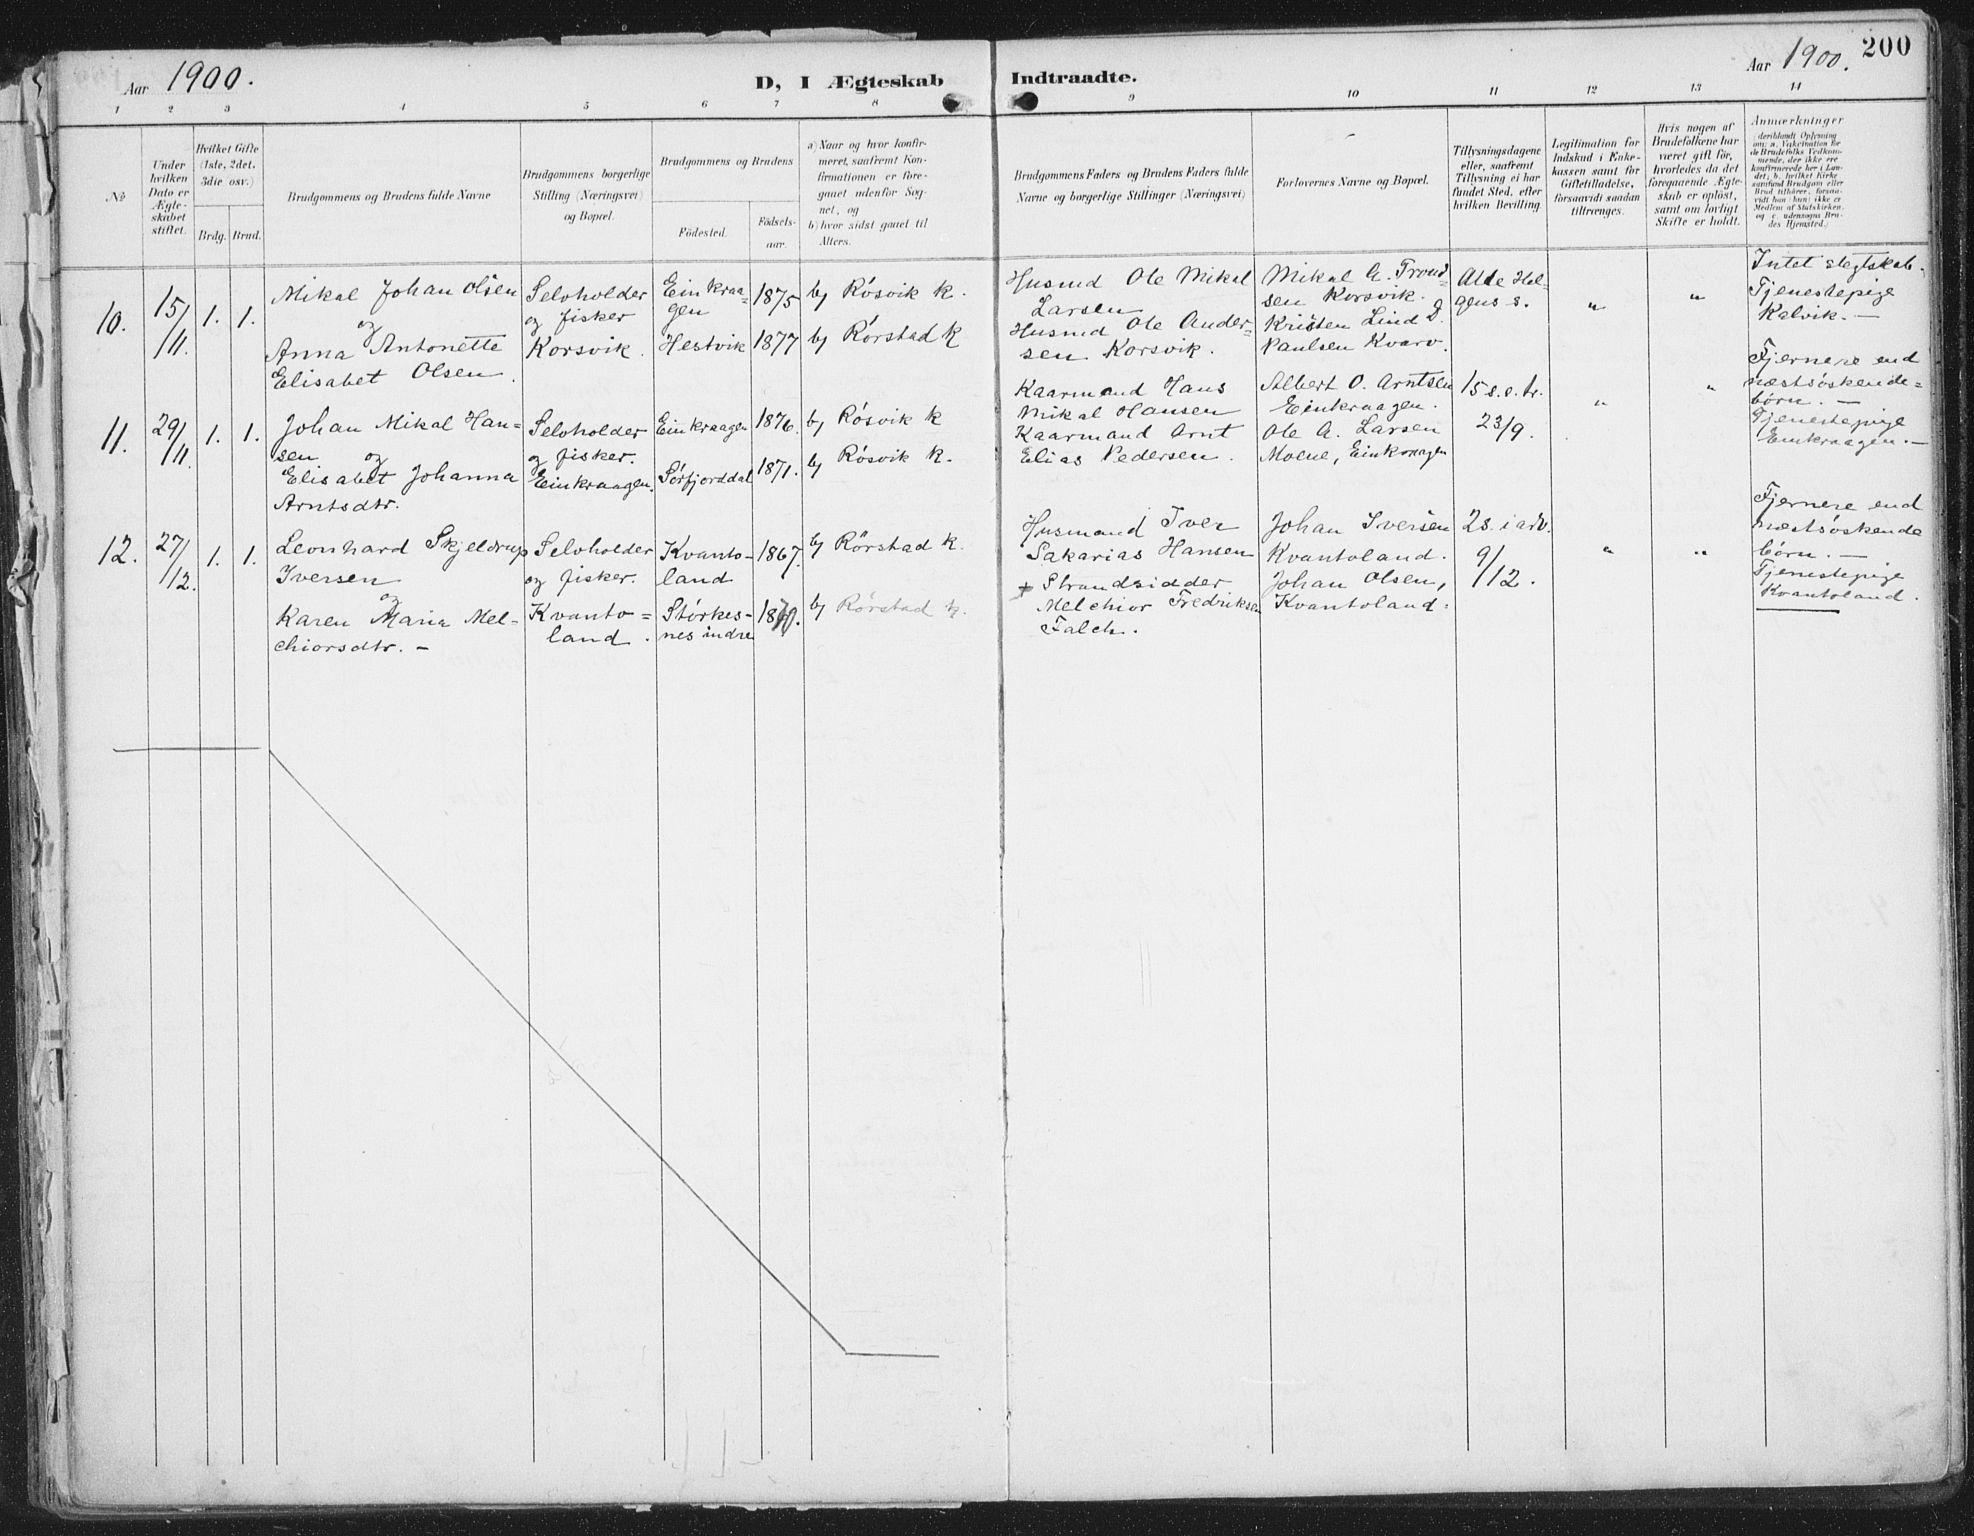 Aar 1900.
D, I Ægteskab Indtraadte.
Aar 1900. 200
1 2 3 4 5 6 7 8 9 10 11 12 13 14
No
Under hvilken Dato er Ægteskabet stiftet.
Hvilket Gifte (1ste, 2det, 3die osv.)
Brdg. Brud.
Brudgommens og Brudens fulde Navne
Brudgommens borgerlige Stilling (Næringsvei) og Bopæl.
Brudgommens og Brudens
Födested. Födsels-aar.
a) Naar og hvor konfir-
meret, saafremt Kon-
firmationen er fore-
gaaet udenfor Sog-
net, og
b) hvor sidst gaaet til
Alters.
Brudgommens Faders og Brudens Faders fulde
Navne og borgerlige Stillinger (Næringsvei)
Forlovernes Navne og Bopæl.
Tillysningsdagene
eller, saafremt
Tillysning ei har
fundet Sted, efter
hvilken Bevilling.
Legitimation for
Indskud i Enke-
kassen samt for
Giftetilladelse,
forsaavidt saadan
tiltrænges.
Hvis nogen af
Brudefolkene har
været gift för,
hvorledes da det
foregaaende Ægte-
skab er oplöst,
samt om lovligt
Skifte er holdt.
Anmærkninger
(deriblandt Oplysning
om: a. Vakcination for
de Brudefolks Vedkom-
mende, der ikke ere
konfirmerede her i Lan-
det; b. hvilket Kirke
samfund Brudgom eller
Brud tilhörer, forsaa-
vidt han (hun) ikke er
Medlem af Statskirken.
og c. udensogns Bru-
des Hjemsted.)
10. 15/11. 1. 1.
Mikal Johan Olsen
og
Anna Antonette
Elisabet Olsen.
Selvholder
og fisker
Korsvik.
Einkraa-
gen
Hestvik
1875
1877
b) Rósvik k.
b) Rórstad k
Husmd Ole Mikal
Larsen
Husmd Ole Ander-
sen Korsvik.
Mikal A. Trond-
sen Korsvik.
Kristen Lind
Paulsen Kvarv.
Alle Hel-
gens s.
"
"
Intet slegtskab.
Tjenestepige
Kalvik. —
11. 29/11. 1. 1.
Johan Mikal Han-
sen og
Elisabet Johanna
Arntsdtr.
Selvholder
og fisker.
Einkraagen.
Einkraagen
Sørfjorddal
1876.
1871.
b) Rósvik k
b) Rósvik k.
Kaarmand Hans
Mikal Hansen
Kaarmand Arnt
Elias Pedersen.
Albert O. Arntsen
Einkraagen.
Ole A. Larsen
Moene, Einkraagen
15 s. e. tr.
23/9.
"
"
Fjernere end
næstsöskende-
børn. —
Tjenestepige
Einkraagen. —
12. 27/12. 1. 1.
Leonhard Skjeldrup
Iversen
og
Karen Maria Mel-
chiorsdtr. —
Selvholder
og fisker.
Kvanto-
land.
Kvanto-
land
Stórkes-
nes indre
1867.
1870.
b) Rörstad k.
b) Rórstad k.
Husmand Iver
Sakarias Hansen
+ Strandsidder
Melchior Fredriksen
Falch.
Johan Iversen
Kvantoland.
Johan Olsen,
Kvantoland.
2 s. i adv.
9/12.
"
"
Fjernere end
næstsöskende
börn. —
Tjenestepige
Kvantoland.